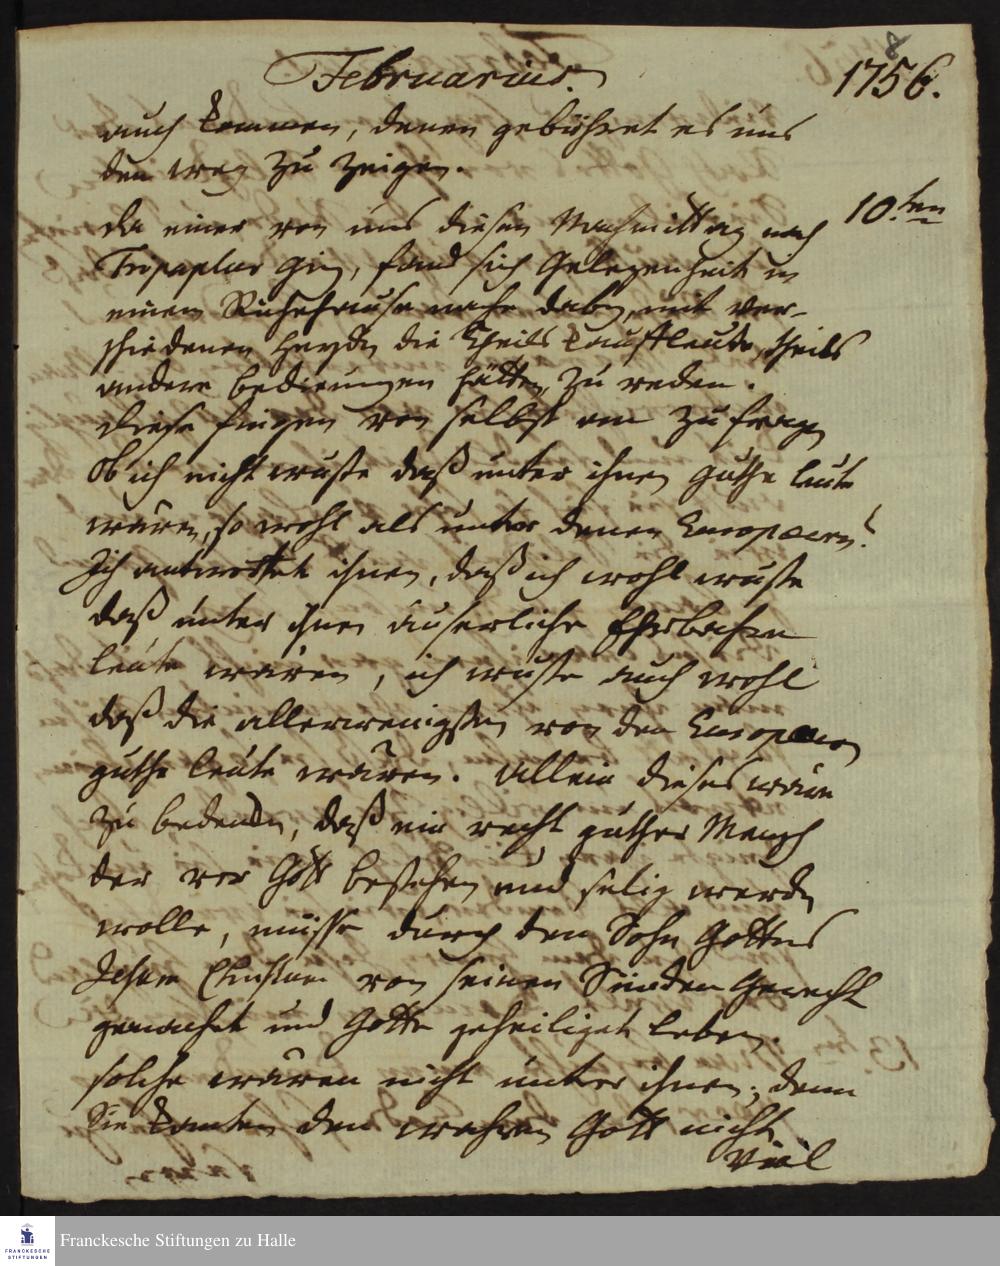 8
Februarius. 1756.
auch kommen, denen gebühret es uns
den weg zu zeigen.
10.ten
Da einer von uns diesen Nachmittag nach
ging, fand sich Gelegenheit in
einem Ruhehause nahe dabey, mit ver-
schiedenen Heyden die theils Kauffleute, theils
andere bedienungen hätten, zu reden.
Diese fingen von selbst an zu fragen
Ob ich nicht wuste daß unter ihnen guthe leute
wären, so wohl als unter denen Europaeern?
Ich antwortet ihnen, daß ich wohl wuste
daß unter ihnen äuserliche Ehrbahre
leute wären, ich wuste auch wohl
daß die allerwenigsten von den Europaeern
guthe leute wären. Allein dieses wäre
zu bedencken, daß ein recht guther Mensch
der vor Gott bestehen und selig werden
wolle, müsse durch den Sohn Gottes
Jesum Christum von seinen Sünden Gerecht
gemacht und Gotte geheiliget leben.
solche wären nicht unter ihnen; denn
Sie kenten den wahren Gott nicht
viel
Franckesche Stiftungen zu Halle
FRANCKESCHE
STIFTUNGEN